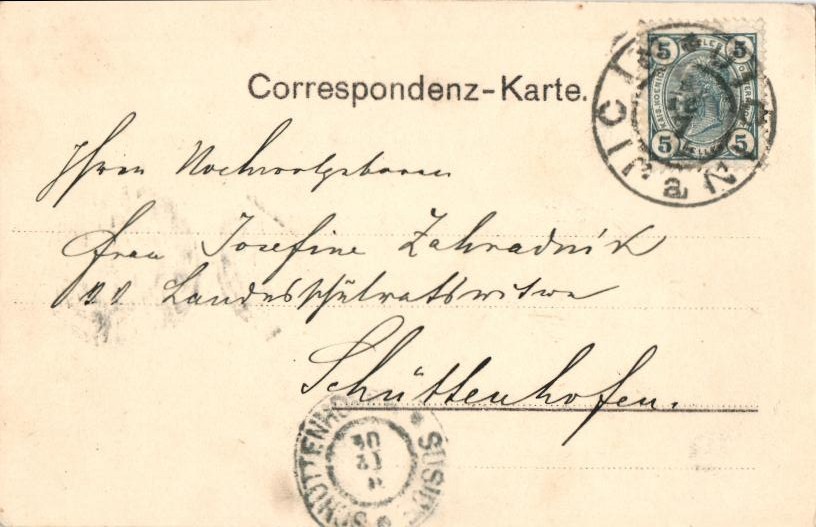 Correspondenz-Karte.
5 5
5 5
Ihrer Hochwolgeboren
Frau Josefine Zahradnik
Landesschulratswitwe
Schüttenhofen.
SCHÜTTENHO